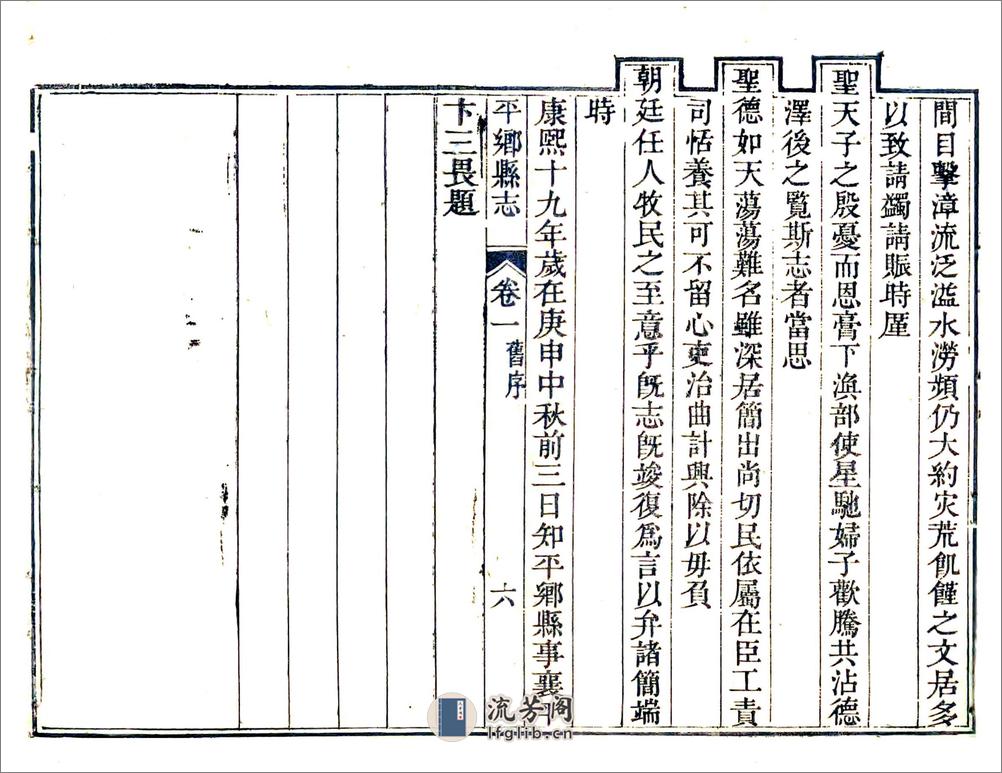 間目擊漳流泛溢水澇頻仍大約灾荒飢饉之文居多
以致請蠲請賑時厪
聖天子之殷憂而恩膏下渙部使星馳婦子歡騰共沾德
澤後之覽斯志者當思
聖德如天蕩蕩難名雖深居簡出尚切民依屬在臣工責
司恬養其可不留心吏治曲計興除以毋負
朝廷任人牧民之至意乎旣志旣竣復爲言以弁諸簡端
時
康熙十九年歲在庚申中秋前三日知平鄉縣事襄
平鄉縣志 卷一 舊序 六
卞三畏題
流芳阁
lfglib.cn